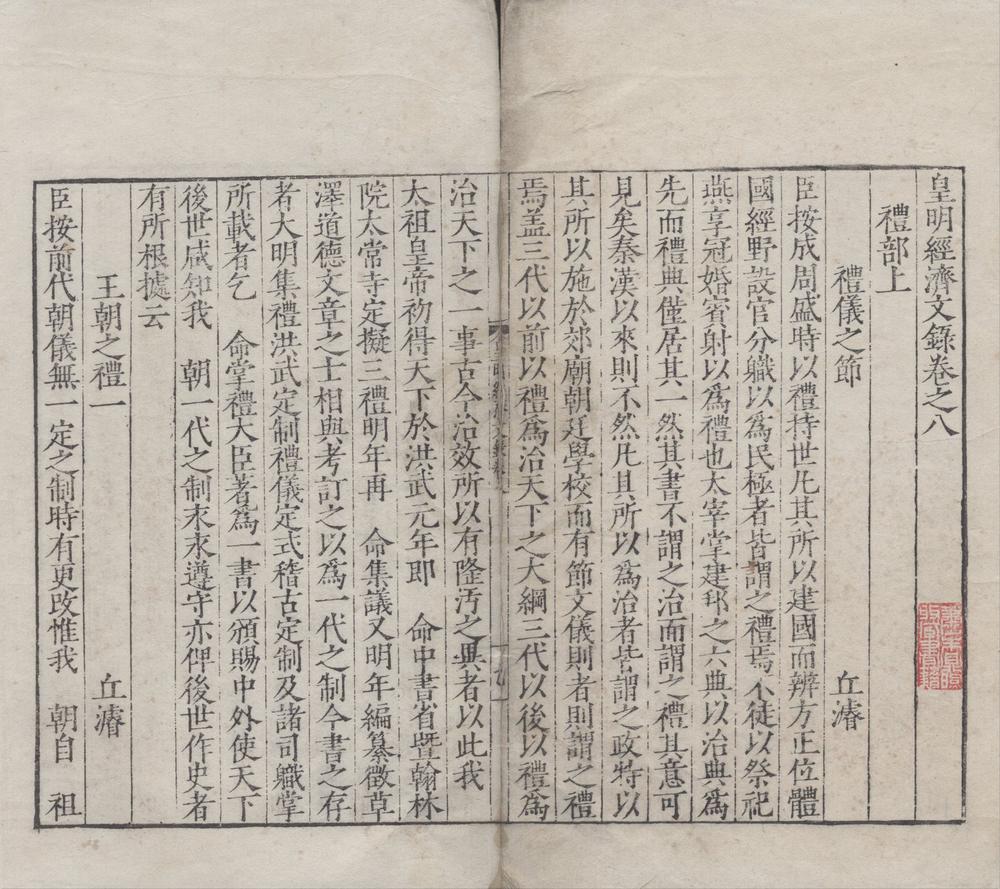 皇明經濟文錄卷之八
禮部上
禮儀之節 丘濬
臣按成周盛時以禮持世凡其所以建國而辨方正位體
國經野設官分職以爲民極者皆謂之禮焉不徒以祭祀
燕享冠婚賓射以爲禮也太宰掌建邦之六典以治典爲
先而禮典僅居其一然其書不謂之治而謂之禮其意可
見矣秦漢以來則不然凡其所以爲治者皆謂之政特以
其所以施於郊廟朝廷學校而有節文儀則者則謂之禮
焉盖三代以前以禮爲治天下之大綱三代以後以禮爲
治天下之一事古今治效所以有隆汚之異者以此我
太祖皇帝初得天下於洪武元年即 命中書省暨翰林
院太常寺定擬三禮明年再 命集議又明年編纂徵草
澤道德文章之士相與考訂之以爲一代之制今書之存
者大明集禮洪武定制禮儀定式稽古定制及諸司職掌
所載者乞 命掌禮大臣著爲一書以頒賜中外使天下
後世咸知我 朝一代之制永永遵守亦俾後世作史者
有所根據云
王朝之禮一 丘濬
臣按前代朝儀無一定之制時有更改惟我 朝自 祖